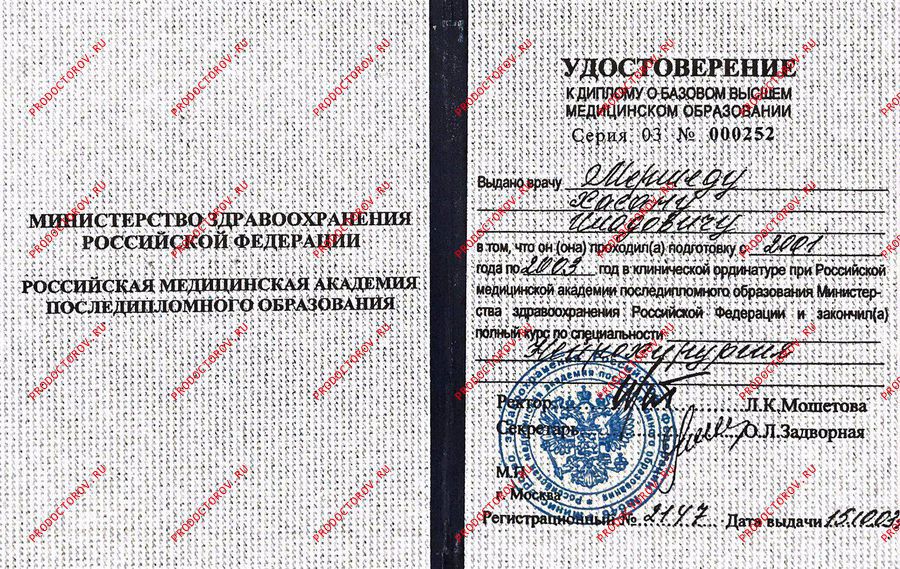 МИНИСТЕРСТВО ЗДРАВООХРАНЕНИЯ
РОССИЙСКОЙ ФЕДЕРАЦИИ
РОССИЙСКАЯ МЕДИЦИНСКАЯ АКАДЕМИЯ
ПОСЛЕДИПЛОМНОГО ОБРАЗОВАНИЯ
УДОСТОВЕРЕНИЕ
К ДИПЛОМУ О БАЗОВОМ ВЫСШЕМ
МЕДИЦИНСКОМ ОБРАЗОВАНИИ
Серия 03 № 000252
Выдано врачу
в том, что он (она) проходил(а) подготовку с 2001
года по 2003 год в клинической ординатуре при Российской
медицинской академии последипломного образования Министер-
ства здравоохранения Российской Федерации и закончил(а)
полный курс по специальности
Нейрохирургия
Ректор Л.К.Мошетова
Секретарь О.Л.Задворная
М.П.
г. Москва
Регистрационный № 2147 Дата выдачи 15.10.03
PRODOCTOROV.RU